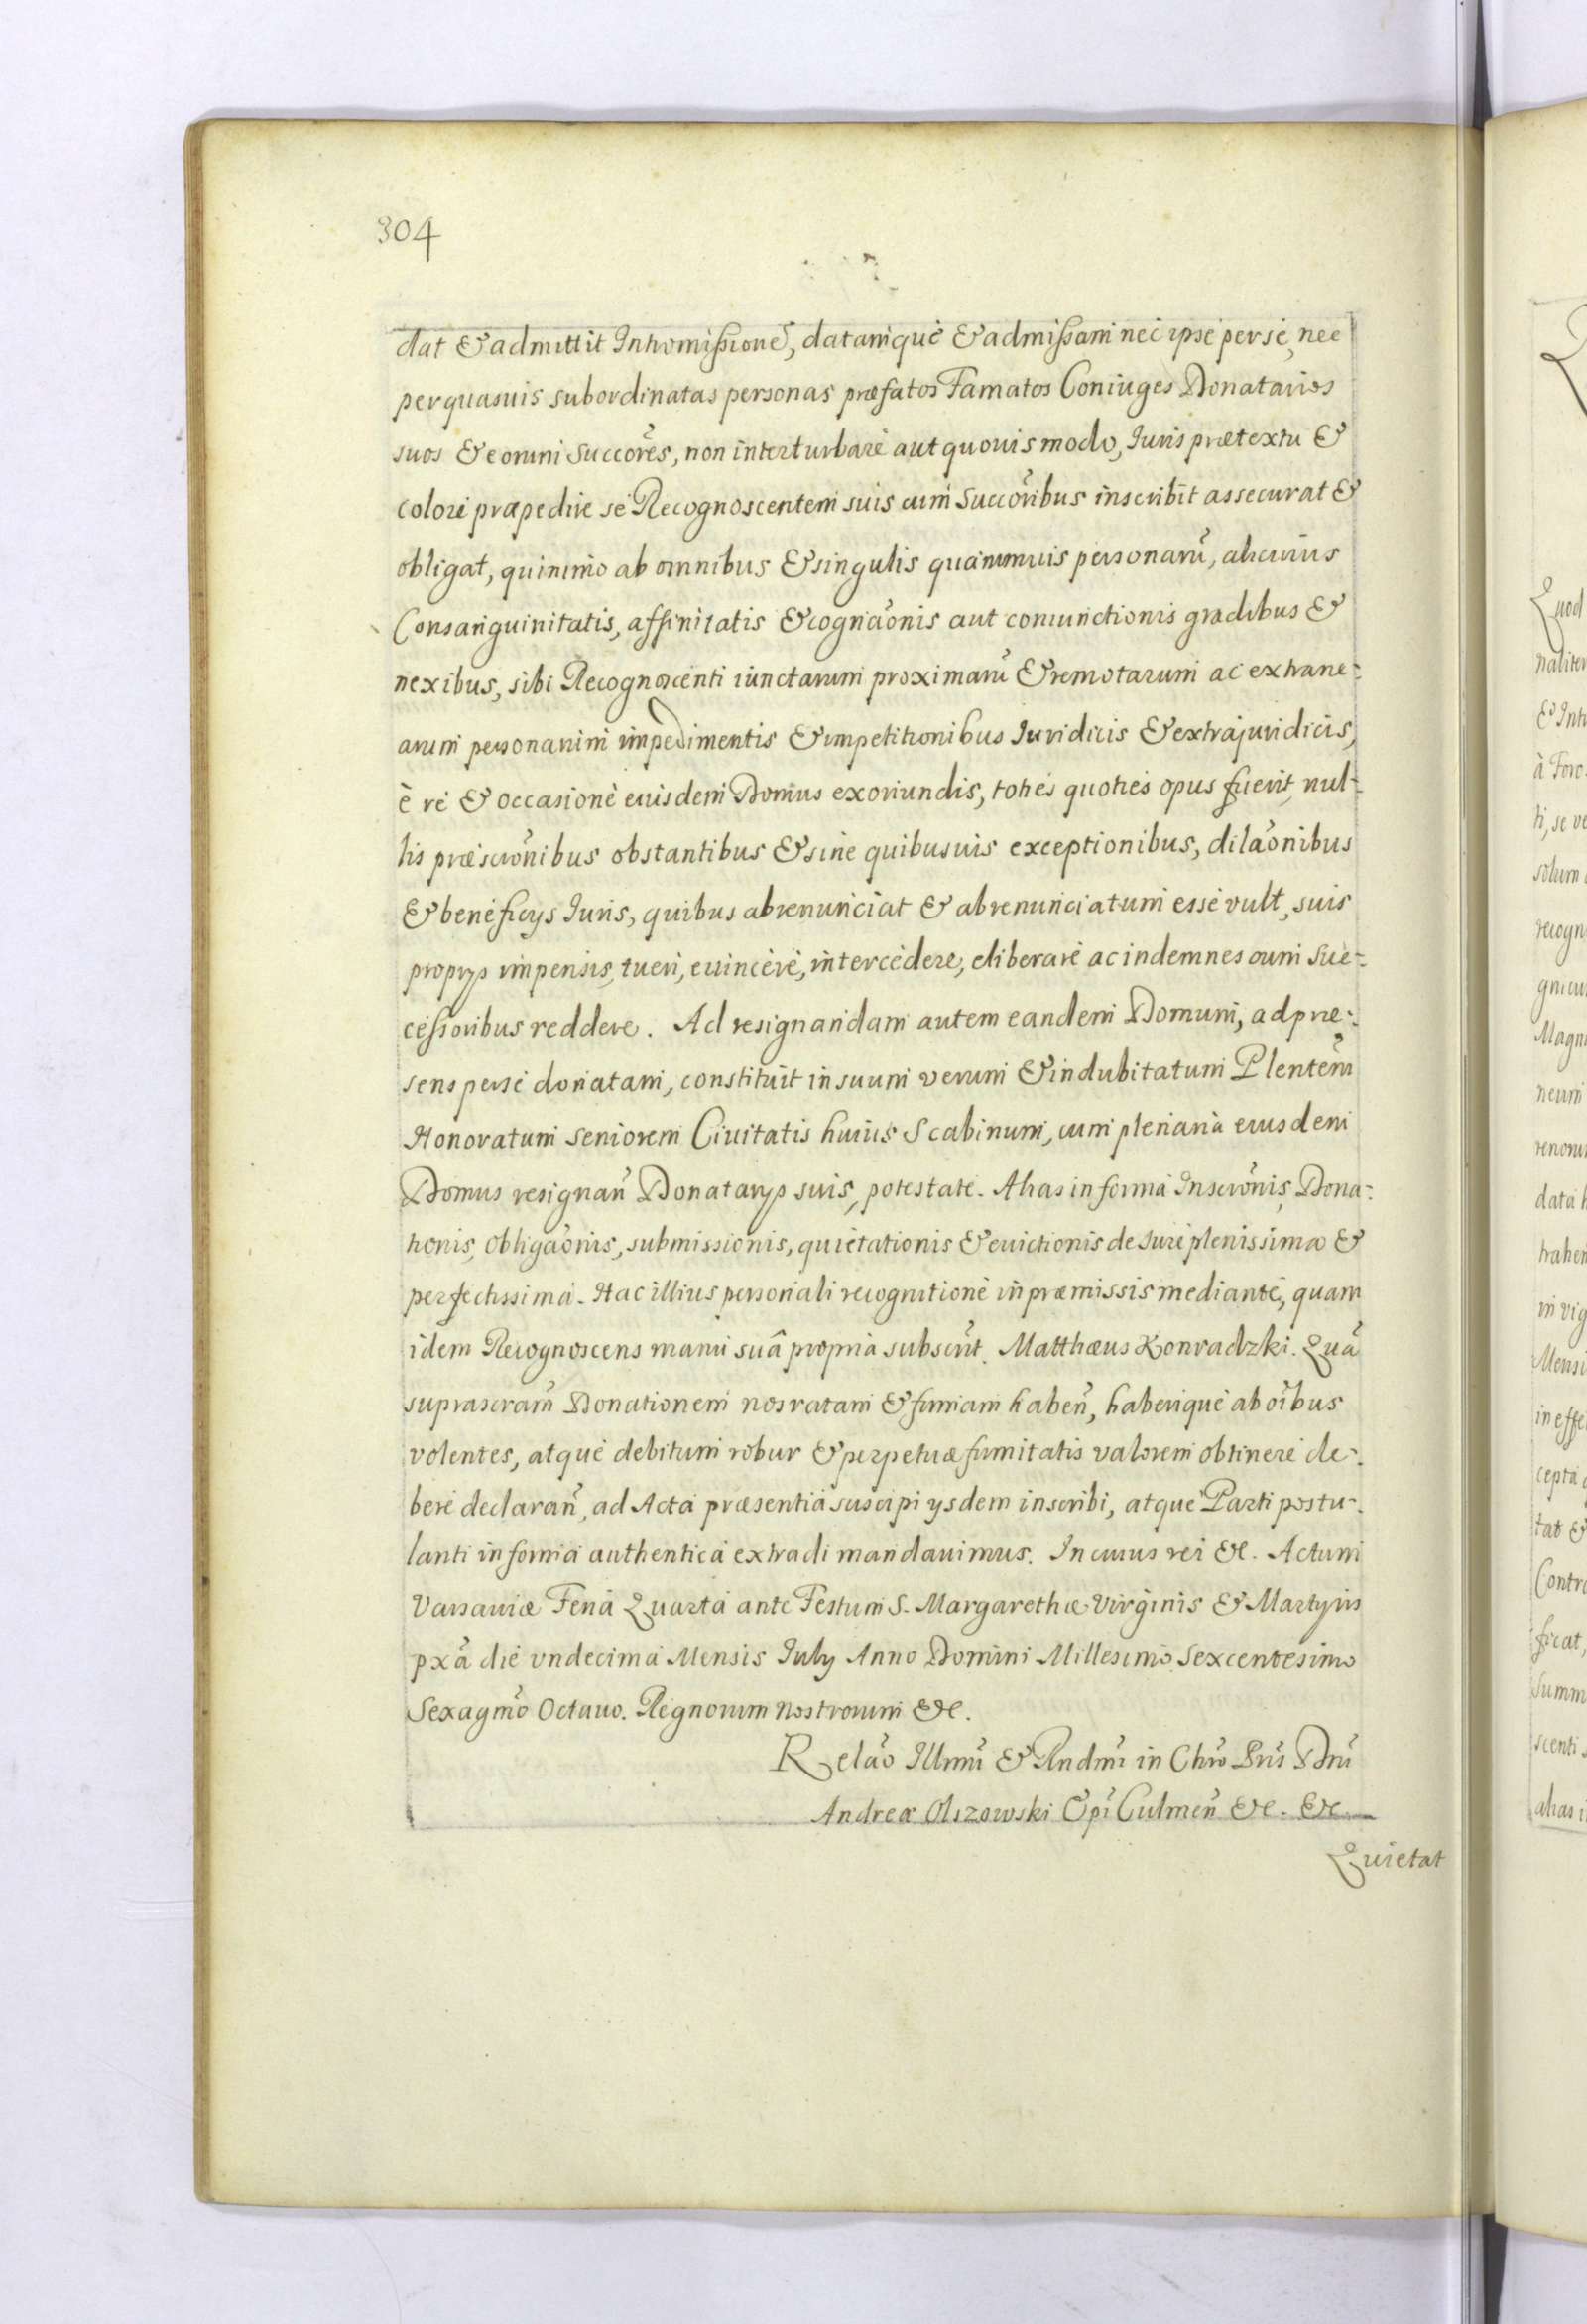 304
dat & admittit Intromissionẽ, datamque & admissam nec ipse per se, nec
per quasuis subordinatas personas præfatos Famatos Coniuges Donatarios
suos & eorum Succōres, non interturbare aut quouis modo, Iuris prætextu &
colore præpedire se Recognoscentem suis cum Succōribus inscribit assecurat &
obligat, quinimo ab omnibus & singulis quarumuis personarũ, alicuius
Consanguinitatis, affinitatis & cognaõnis aut coniunctionis gradibus &
nexibus, sibi Recognoscenti iunctarum proximarũ & remotarum ac extrane-
arum personarum impedimentis & impetitionibus Iuridicis & extrajuridicis,
è re & occasione eiusdem Domus exoriundis, toties quoties opus fuerit, nul-
lis præscrõnibus obstantibus & sine quibusuis exceptionibus, dilaõnibus
& beneficys Iuris, quibus abrenunciat & abrenunciatum esse vult, suis
proprys impensis, tueri, euincere, intercedere, eliberare ac indemnes cum Suc-
cessoribus reddere. Ad resignandam autem eandem Domum, ad præ-
sens per se donatam, constituit in suum verum & indubitatum Plentem̃
Honoratum seniorem Ciuitatis huius Scabinum, cum plenaria eiusdem
Domus resignañ Donatarys suis, potestate. Alias in forma Inscrõnis, Dona-
tionis, Obligaõnis, submissionis, quietationis & euictionis de Iure plenissima &
perfectissima. Hac illius personali recognitione in præmissis mediante, quam
idem Recognoscens manu suâ propria subscrit̃. Matthæus Konradzki. Quã
suprascram̃ Donationem nos ratam & firmam habeñ, haberique ab oĩbus
volentes, atque debitum robur & perpetuæ firmitatis valorem obtinere de-
bere declarañ, ad Acta præsentia suscipi ysdem inscribi, atque Parti postu-
lanti in forma authentica extradi mandauimus. In cuius rei &c. Actum
Varsauiæ Feria Quarta ante Festum S. Margarethæ Virginis & Martyris
pxã die vndecima Mensis July Anno Domini Millesimo Sexcentesimo
Sexagm̃o Octauo. Regnorum nostrorum &c.
Relaõ Illmi̅ & Rndmi̅ in Chro̅ Pris̅ Dni̅
Andreæ Olszowski Epĩ Culmeñ &c. &c.
Quietat